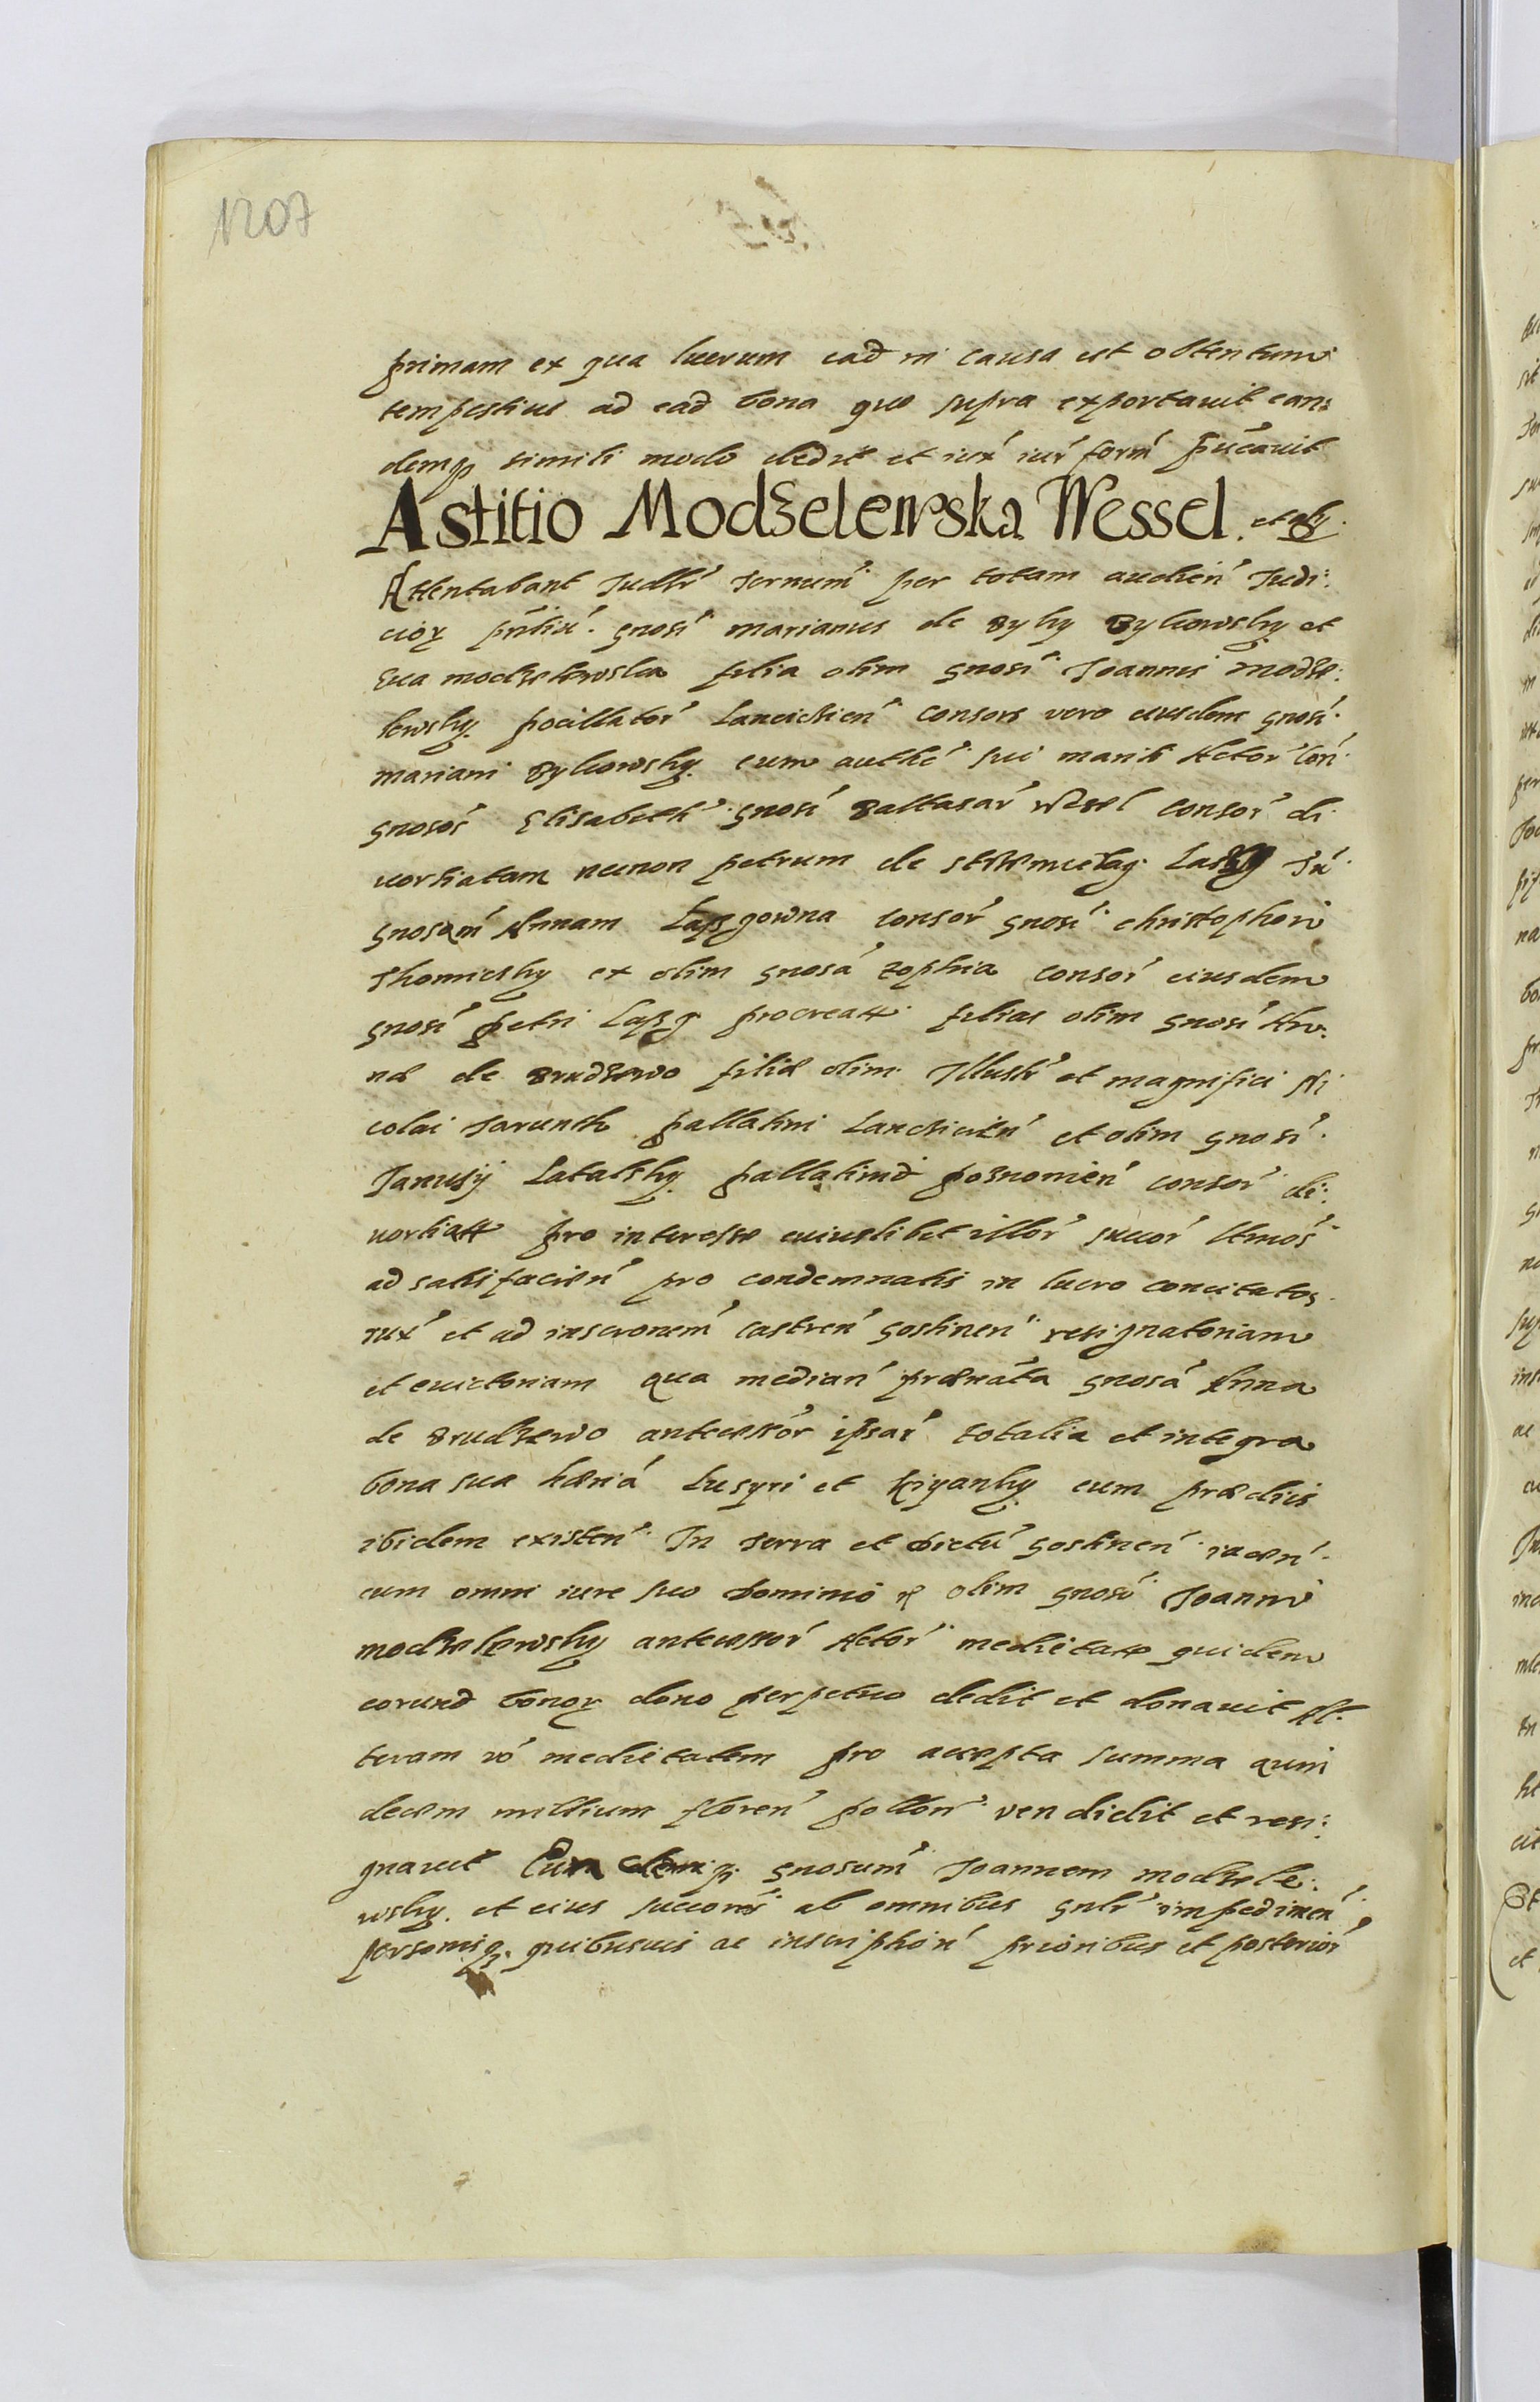 1207
primam ex qua lucrum ead in causa est obtentum
tempestive ad ead bona quo supra exportavit ean:
demq simili modo dedit et iux iur form
Astitio Modzelewska Wessel. et aly.
Attentabant Judli ternum per totam audien Judi:
cior pntiu. gnosi marianus de Byky Bykowsky et
Eva modzelewska filia olim gnosi Joannis modze:
lewsky pocillator Lancicien consors vero eiusdem gnosi.
mariani Bykowsky cum authe sui mariti Actor Con
gnosos Elisabeth gnosi Baltasar Wesel consor di
vortiatam necnon petrum de
gnosam Annam consor gnosi christophori
Thomicsky ex olim gnosa zophia consor eiusdem
gnosi petri procreatt filias olim gnosi An:
næ de Brudzewo filiæ olim Illustr et magnifici Ni
colai Jarunth pallatini Lancicien et olim gnosi.
Janusij Latalsky pallatinid poznonien consor di:
vortiatt pro interesse cuiuslibet illor succor ttrmos
ad satisfacien pro condemnatis in lucro concitatos
iux et ad inscronem castren gostinen resignatoriam
et evictoriam qua median prænata gnosa Anna
de Brudzewo antecessor ipsar totalia et integra
bona sua hæria Lusyni et Kiyanky cum prædiis
ibidem existen In terra et dictu gostinen iacen
cum omni iure suo dominio et olim gnosi Joanni
modzelewsky antecessor Actor medietate quidem
eorund bonor dono perpetuo dedit et donavit Al:
teram vo medietatem pro accepta summa quin
decem millium floren pollon vendidit et resi:
gnavit Eundemq gnosum Joannem modzele:
wsky et eius succores ab omnibus gnlr impedimen
personisq quibusvis ac inscription prioribus et posterior